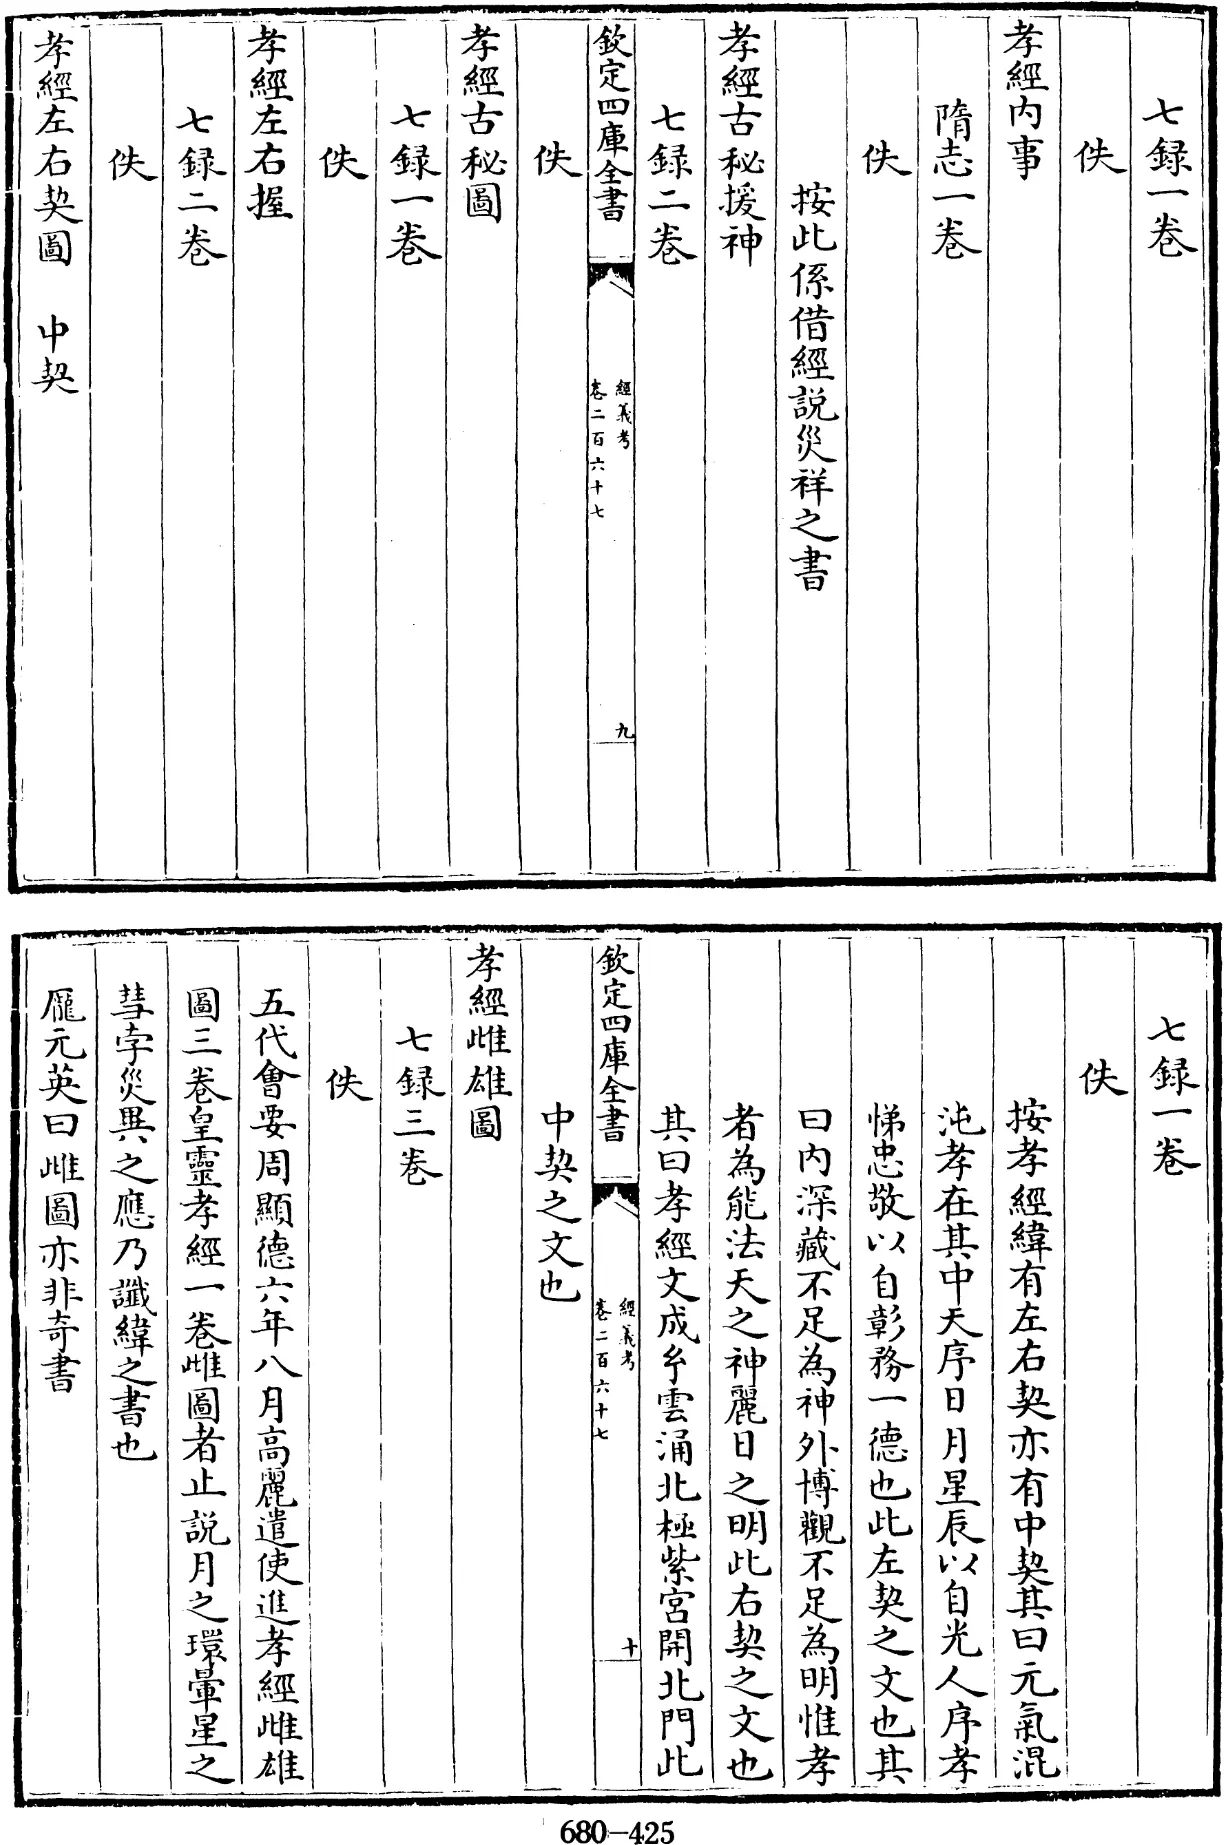 七録一卷
佚
孝經内事
隋志一卷
佚
按此係借經説災祥之書
孝經古秘援神
七録二卷
欽定四庫全書
經義考
卷二百六十七
九
佚
孝經古秘圖
七録一卷
佚
孝經左右握
七録二卷
佚
孝經左右契圖 中契
七録一卷
佚
按孝經緯有左右契亦有中契其曰元氣混
沌孝在其中天序日月星辰以自光人序孝
悌忠敬以自彰務一德也此左契之文也其
曰内深藏不足為神外博觀不足為明惟孝
者為能法天之神麗日之明此右契之文也
其曰孝經文成而雲涌北極紫宫開北門此
欽定四庫全書
經義考
卷二百六十七
十
中契之文也
孝經雌雄圖
七録三卷
佚
五代會要周顯德六年八月高麗遣使進孝經雌雄
圖三卷皇靈孝經一卷雌圖者止説月之環暈星之
彗孛災異之應乃讖緯之書也
龎元英曰雌圖亦非奇書
680-425